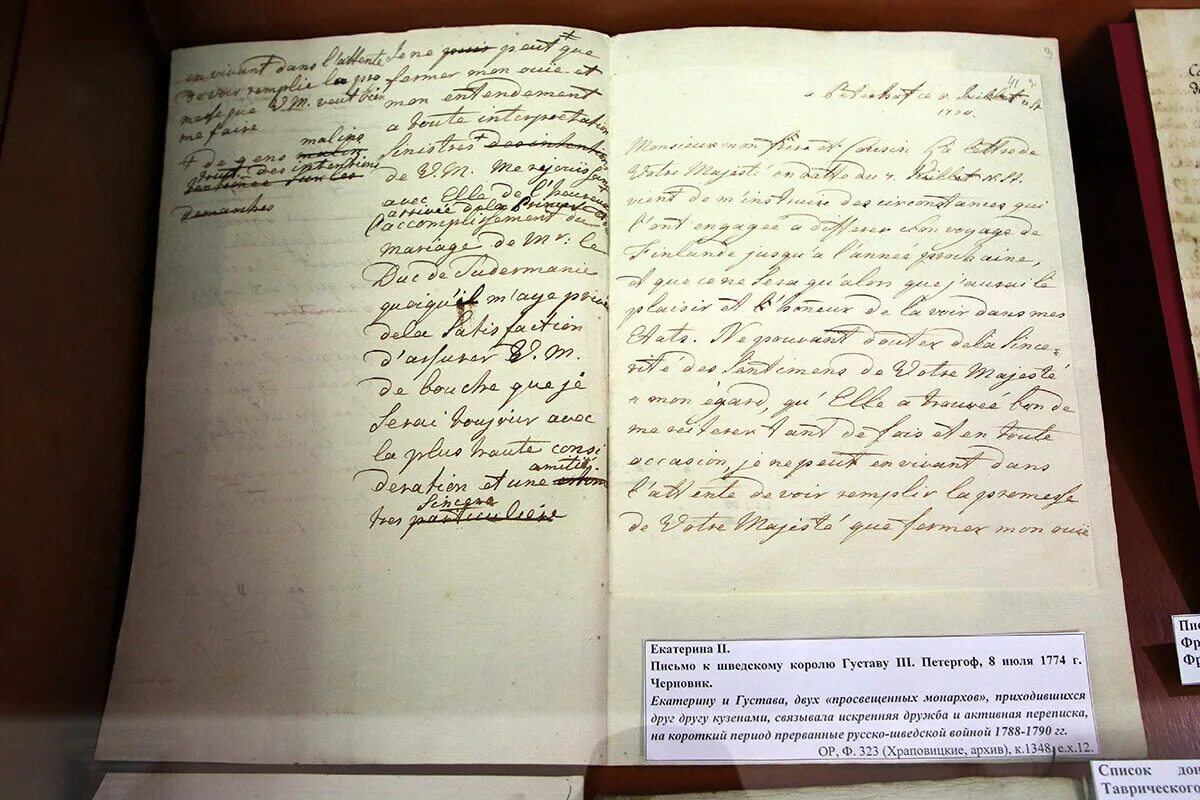 en vivant dans l'attente
de voir remplir la pro
messe que V. M. veut bien
me faire
+ de gens malins
malin
des intentions
sur les
demarches
Je ne puis peut que
fermer mon ouïe et
mon entendement
a toute interpretation
sinistre + des intentions
de V. M. Me rejouissant
avec Elle de l'heureuse
arrivée de la Princesse et
l'accomplissement du
mariage de Mr. le
Duc de Sudermanie
quoiqu'il m'aye privé
de la satisfaction
d'assurer V. M.
de bouche que je
serai toujour avec
la plus haute consi
amitié
deration et une estime
sincere
tres particuliere
3
a Peterhof ce 8 Juillet v. St.
1774.
Monsieur mon frère et Cousin. La lettre de
Votre Majesté en datte du 4. Juillet n. St.
vient de m'instruire des circonstances qui
l'ont engagée a differer son voyage de
Finlande jusqu'a l'année prochaine,
et que ce ne sera qu'alors que j'aurai le
plaisir et l'honneur de la voir dans mes
Etats. Ne pouvant douter de la since-
rité des sentimens de Votre Majesté
a mon égard, qu'Elle a trouvée bon de
me reiterer tant de fois et en toute
occasion, je ne peut en vivant dans
l'attente de voir remplir la promesse
de Votre Majesté que fermer mon ouïe
Екатерина II.
Письмо к шведскому королю Густаву III. Петергоф, 8 июля 1774 г.
Черновик.
Екатерину и Густава, двух «просвещенных монархов», приходившихся
друг другу кузенами, связывала искренняя дружба и активная переписка,
на короткий период прерванные русско-шведской войной 1788-1790 гг.
ОР, Ф. 323 (Храповицкие, архив), к.1348, е.х.12.
Пи
Фр
Фр
Список до
Таврического